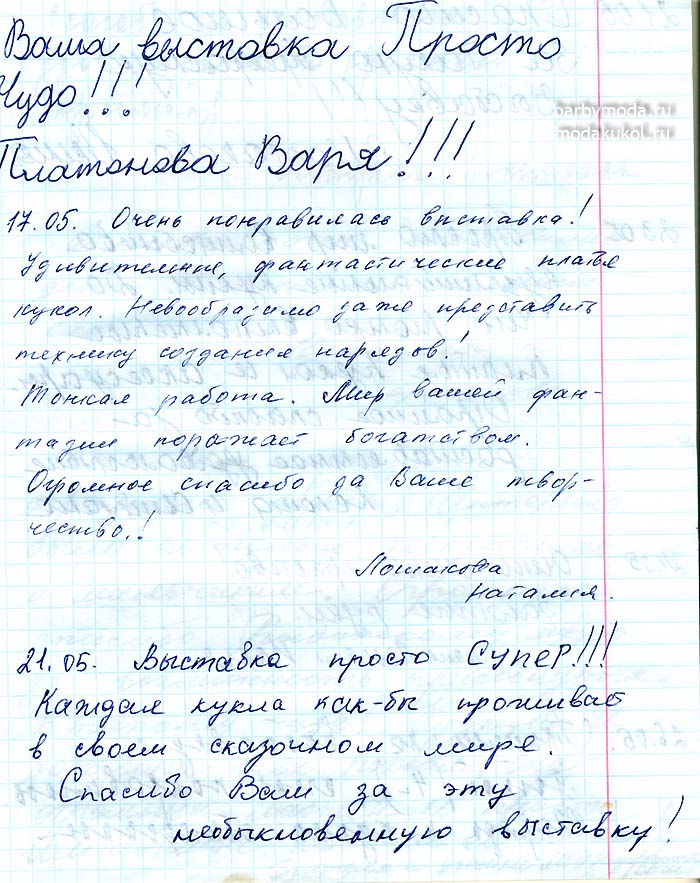 Ваша выставка Просто
Чудо!!!
Платонова Варя!!!
barbymoda.ru
modakukol.ru
17.05. Очень понравилась выставка!
Удивительные, фантастические платья
кукол. Невообразимо даже представить
технику создания нарядов!
Тонкая работа. Мир вашей фан-
тазии поражает богатством.
Огромное спасибо за Ваше твор-
чество!
Лошакова
Наталия.
21.05. Выставка просто СУПЕР!!!
Каждая кукла как-бы проживает
в своем сказочном мире.
Спасибо Вам за эту
необыкновенную выставку!